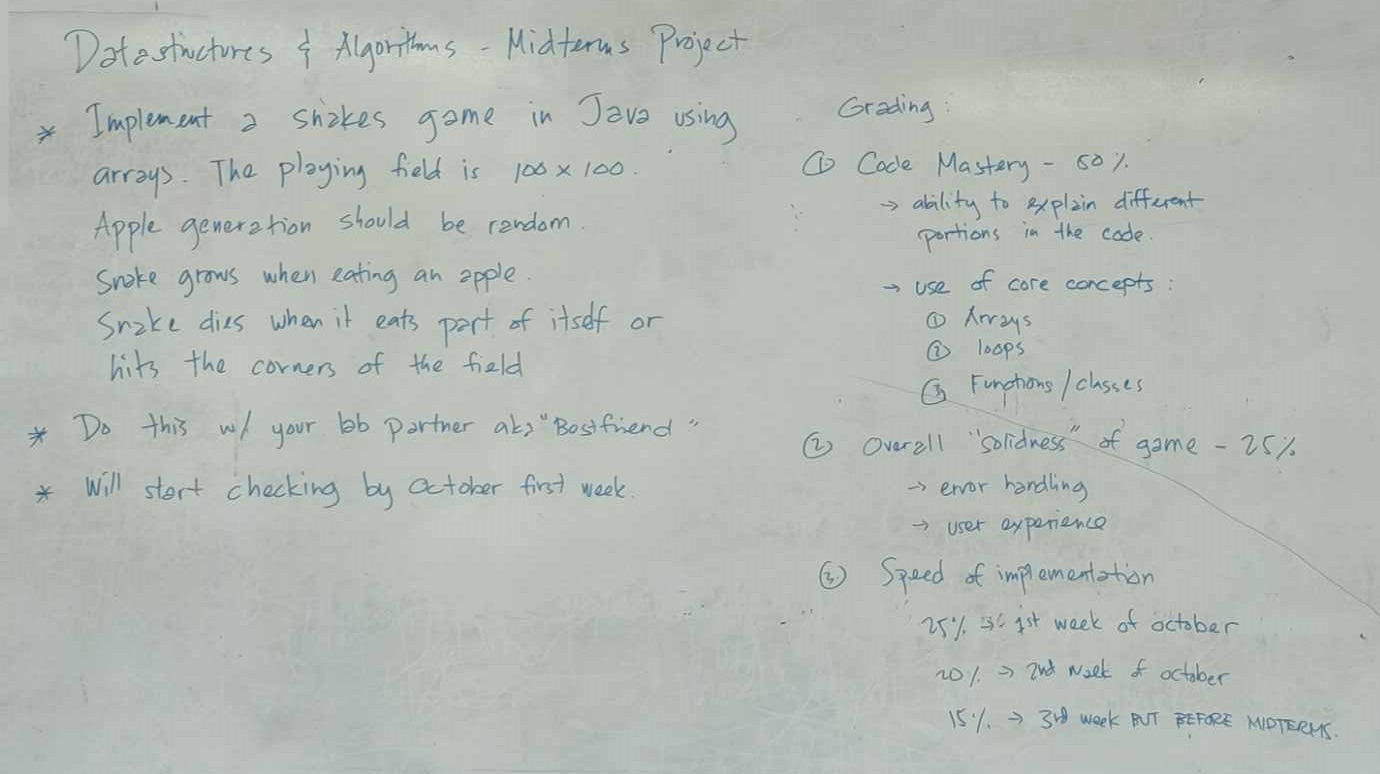 Datastructures & Algorithms - Midterms Project
* Implement a snakes game in Java using
arrays. The playing field is 100 x 100.
Apple generation should be random.
Snake grows when eating an apple.
Snake dies when it eats part of itself or
hits the corners of the field
* Do this w/ your lab partner aka "Bostfriend"
* Will start checking by October first week.
Grading:
① Code Mastery - 50%
→ ability to explain different
portions in the code.
→ use of core concepts:
① Arrays
② loops
③ Functions/classes
② Overall "solidness" of game - 25%
→ error handling
→ user experience
③ Speed of implementation
25% → 1st week of october
20% → 2nd week of october
15% → 3rd week BUT BEFORE MIDTERMS.